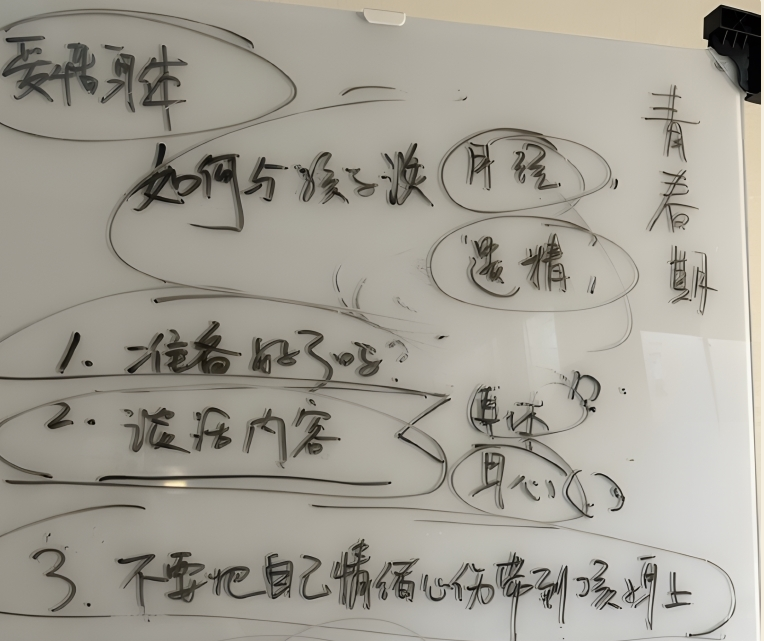 爱惜身体
如何与孩子谈 月经
遗精
青春期
1. 准备好了吗?
2. 谈话内容
身心
3. 不要把自己情绪心伤带到孩身上